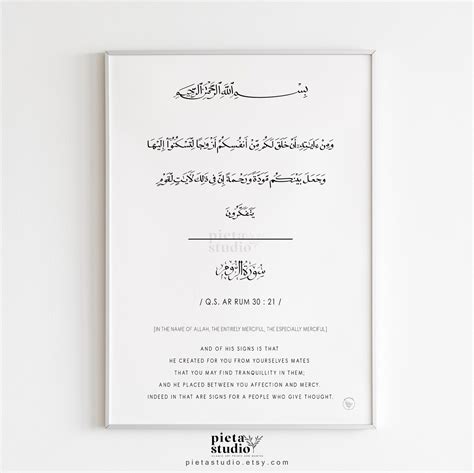 بِسْمِ ٱللَّهِ ٱلرَّحْمَٰنِ ٱلرَّحِيمِ
وَمِنْ ءَايَٰتِهِۦٓ أَنْ خَلَقَ لَكُم مِّنْ أَنفُسِكُمْ أَزْوَٰجًا لِّتَسْكُنُوٓا۟ إِلَيْهَا
وَجَعَلَ بَيْنَكُم مَّوَدَّةً وَرَحْمَةً إِنَّ فِى ذَٰلِكَ لَءَايَٰتٍ لِّقَوْمٍ
يَتَفَكَّرُونَ
pieta
studio
سورة الروم
/ Q.S. AR RUM 30 : 21 /
[IN THE NAME OF ALLAH, THE ENTIRELY MERCIFUL, THE ESPECIALLY MERCIFUL]
AND OF HIS SIGNS IS THAT
HE CREATED FOR YOU FROM YOURSELVES MATES
THAT YOU MAY FIND TRANQUILLITY IN THEM;
AND HE PLACED BETWEEN YOU AFFECTION AND MERCY.
INDEED IN THAT ARE SIGNS FOR A PEOPLE WHO GIVE THOUGHT.
pieta
studio
pietastudio.etsy.com